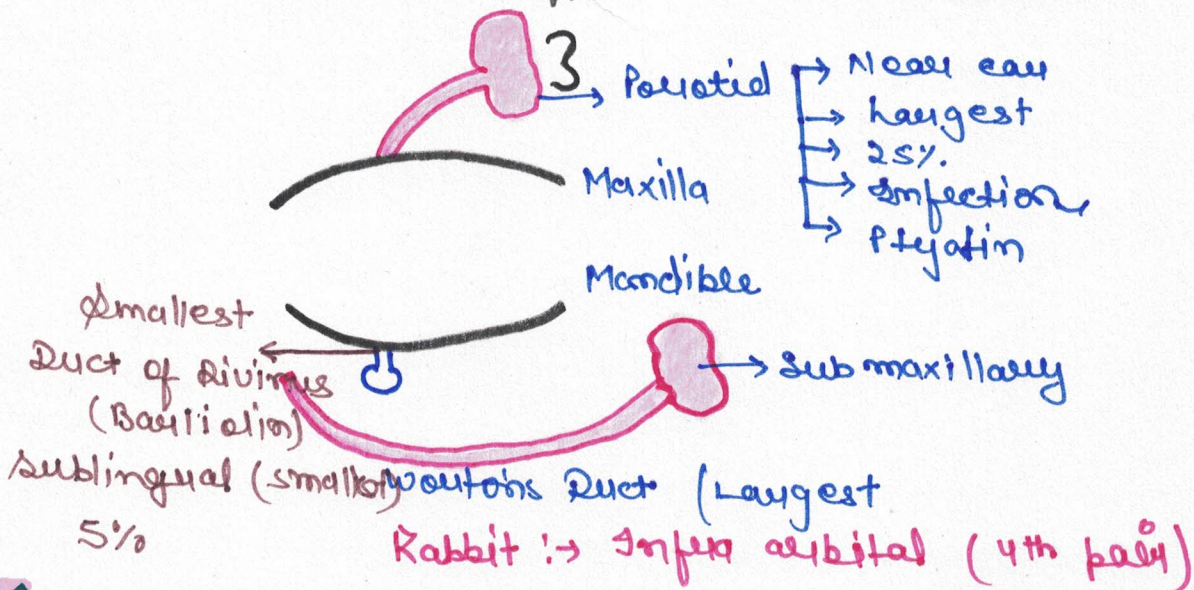 3
Parotid → Near ear
→ Largest
→ 25%.
→ Infection
→ Ptyalin
Maxilla
Mandible
Smallest
Duct of Rivinus
(Bartholin)
→ Submaxillary
Sublingual (smallest) Wartons Duct (Largest
5%
Rabbit :→ Infra orbital (4th pair)